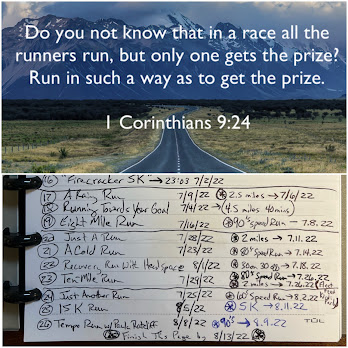 Do you not know that in a race all the
runners run, but only one gets the prize?
Run in such a way as to get the prize.
1 Corinthians 9:24
16) "Firecracker 5K" → 23:03 7/2/22
17) A Rainy Run 7/9/22 2.5 miles → 7/6/22
18) Running Towards Your Goal 7/14/22 (4.5 miles 40mins)
19) Eight Mile Run 7/16/22 90's Speed Run - 7.8.22
20) Just A Run 7/28/22 2 miles → 7.11.22
21) A Cold Run 7/23/22 80's Speed Run → 7.14.22
22) Recovery Run With Headspace 8/1/22 30 on 30 off → 7.18.22
23) Ten Mile Run 7/29/22 80's Speed Run → 7.26.22
24) Just Another Run 7/25/22 60's Speed Run → 8.2.22
25) 15K Run 8/5/22 5K → 8.11.22
26) Tempo Run w/ Paula 8/8/22 90's → 8.9.22
Finish This Page by 8/13/22